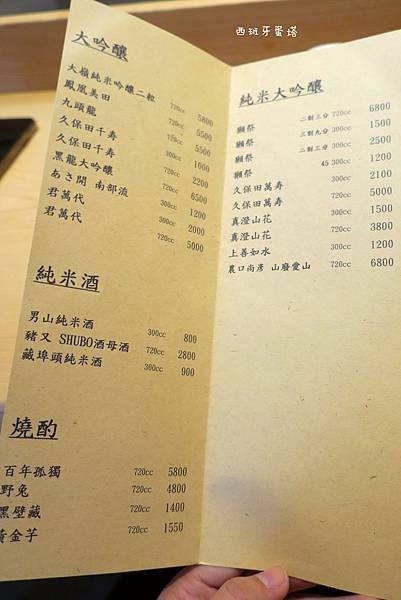 西班牙蛋塔
大吟釀
大嶺純米吟釀二粒 720cc 5800
鳳凰美田 720cc 5500
九頭龍 720cc 5500
久保田千寿 300cc 1000
久保田千寿 720cc 2200
黑龍大吟釀 720cc 6500
あさ開 南部流 300cc 1200
君萬代 300cc 2000
君萬代 720cc 5000
純米酒
男山純米酒 300cc 800
豬又 SHUBO酒母酒 720cc 2800
藏埠頭純米酒 300cc 900
燒酌
百年孤獨 720cc 5800
野兔 720cc 4800
黑壁藏 720cc 1400
黃金芋 720cc 1550
純米大吟釀
獺祭 二割三分 720cc 6800
獺祭 二割三分 300cc 1500
獺祭 三割九分 300cc 2500
獺祭 45 300cc 1200
久保田萬寿 300cc 2100
久保田萬寿 720cc 5000
真澄山花 300cc 1500
真澄山花 720cc 3800
上善如水 300cc 1200
農口尚彥 山廢愛山 720cc 6800